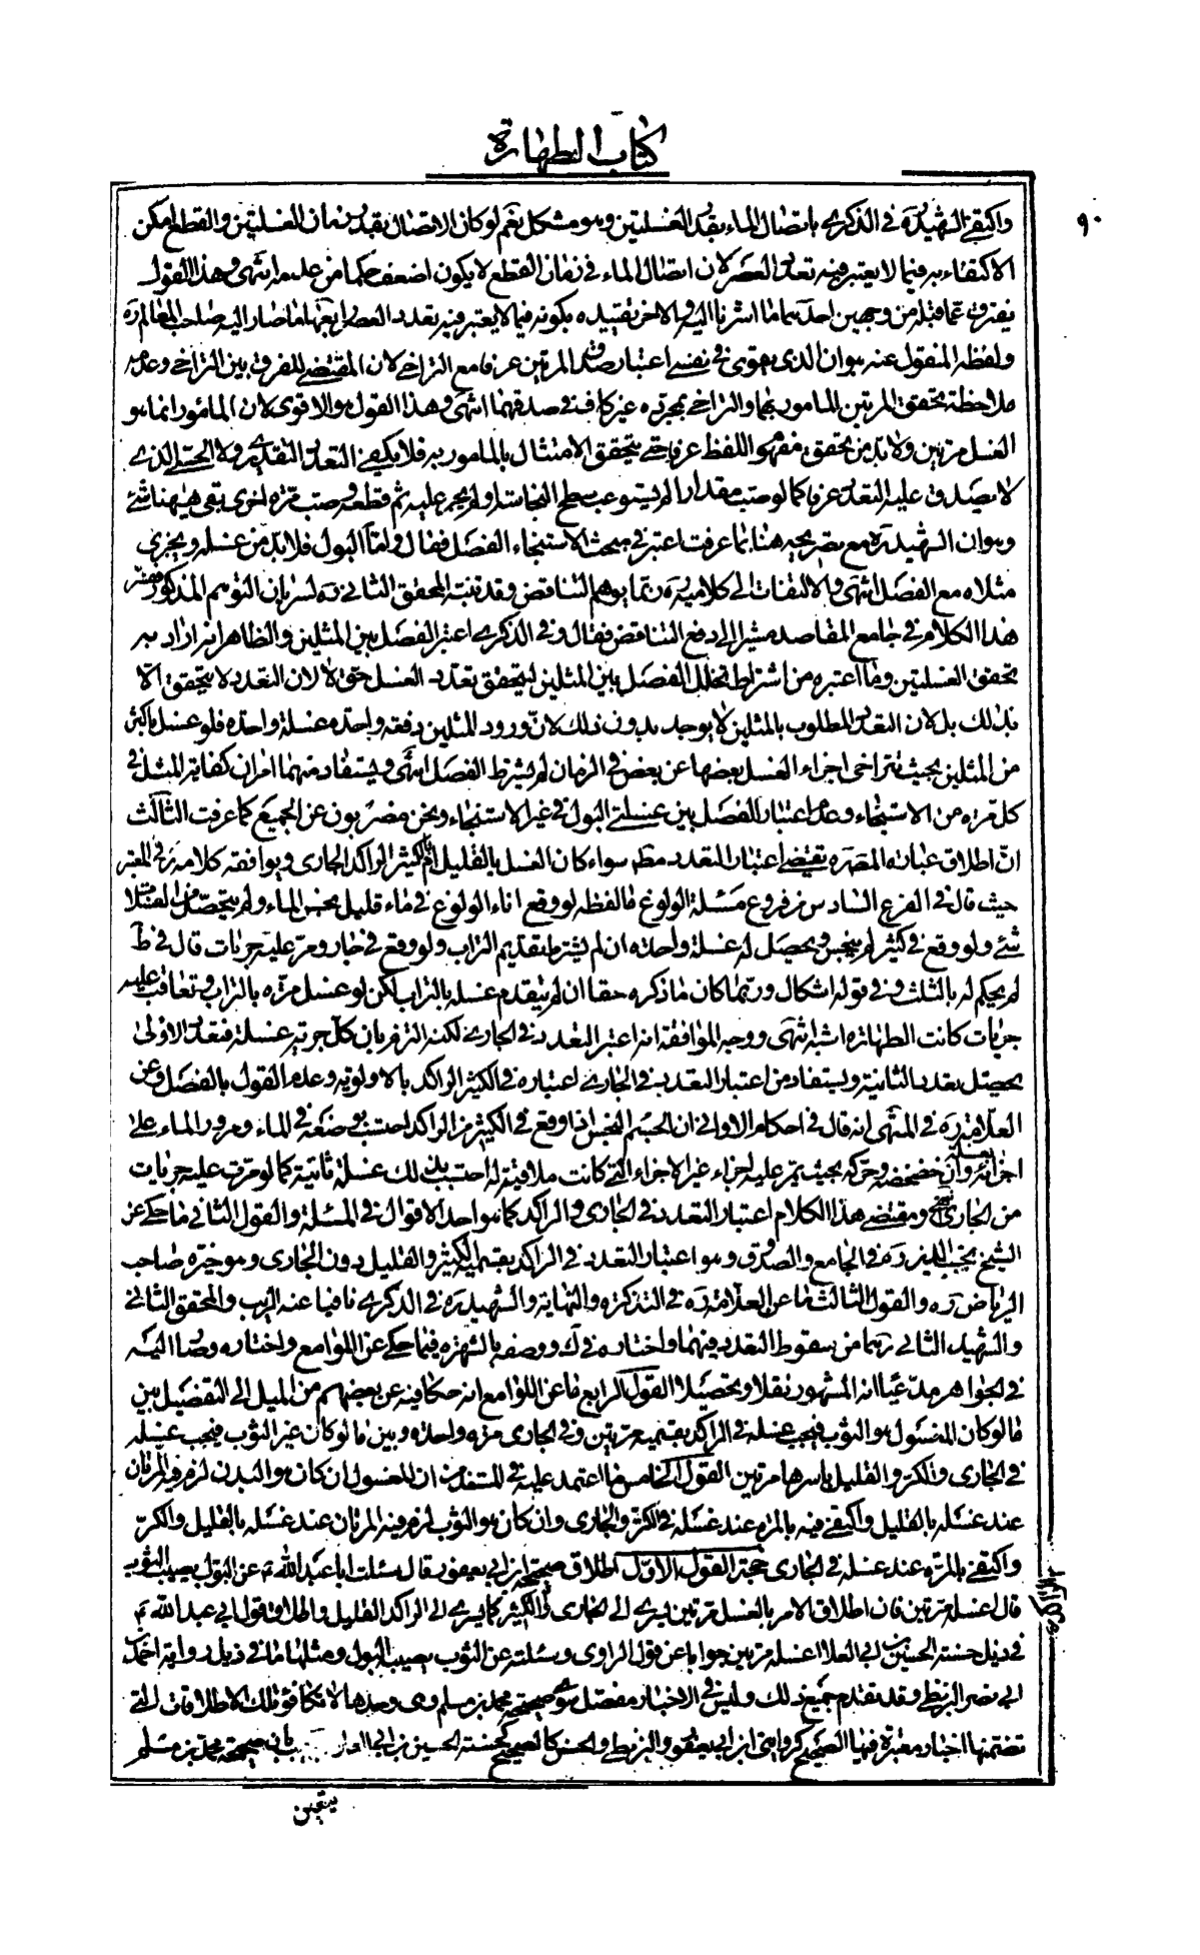 كتاب الطهارة
٩٠
واكتفى الشهيد ره في الذكرى باتصال الماء بقدر الغسلتين وهو مشكل نعم لو كان الاتصال بقدر زمان الغسلتين والقطع امكن
الاكتفاء به فيما لا يعتبر فيه تعدد العصر لان اتصال الماء في زمان القطع لا يكون اضعف حكما من عدمه انتهى وهذا القول
يفترق عما قبله من وجهين احدهما ما اشرنا اليه والاخر تقييده بكونه فيما لا يعتبر فيه تعدد العصر رابعها ما صار اليه صاحب المعالم ره
ولفظه المنقول عنه هو ان الذي يقوى في نفسي اعتبار صدق المرتين عرفا مع التراخي لان المقتضى للفرق بين التراخي وعدمه
ملاحظة تحقق المرتين المامور بهما والتراخي بمجرده غير كاف في صدقهما انتهى وهذا القول هو الاقوى لان المامور انما هو
الغسل مرتين ولا بد من تحقق مفهوم اللفظ عرفا حتى يتحقق الامتثال بالمامور به فلا يكفي التعدد التقديري ولا الحسي الذي
لا يصدق عليه التعدد عرفا كما لو صب مقدار لم يستوعب سطح النجاسة او لم يجر عليه ثم قطعه وصب مرة اخرى بقى هيهنا شئ
وهو ان الشهيد ره مع تصريحه هنا بما عرفت اعتبر في مبحث الاستنجاء الفصل فقال واما البول فلا بد من غسله ويجزي
مثلاه مع الفصل انتهى والالتفات الى كلاميه ره ربما يوهم التناقض وقد تنبه المحقق الثاني ره لسريان التوهم المذكور
هذا الكلام في جامع المقاصد مشيرا الى دفع التناقض فقال وفي الذكرى اعتبر الفصل بين المثلين والظاهر انه اراد به
تحقق الغسلتين وما اعتبره من اشتراط تخلل الفصل بين المثلين ليتحقق تعدد الغسل حق لا لان التعدد لا يتحقق الا
بذلك بل لان التعدد المطلوب بالمثلين لا يوجد بدون ذلك لان ورود المثلين دفعة واحدة غسلة واحدة فلو غسل باكثر
من المثلين بحيث تتراخى اجزاء الغسل بعضها عن بعض في الزمان لم يشترط الفصل انتهى ويستفاد منهما امران كفاية المثل في
كل مرة من الاستنجاء وعدم اعتبار الفصل بين غسلتي البول في غير الاستنجاء ونحن مضربون عن الجميع كما عرفت الثالث
ان اطلاق عبارة المصره يقتضى اعتبار التعدد مط سواء كان الغسل بالقليل ام الكثير الراكد الجاري ويوافقه كلامه ره في المعتبر
حيث قال في الفرع السادس من فروع مسئلة الولوغ ما لفظه لو وقع اناء الولوغ في ماء قليل نجس الماء ولم يتحصل من الغسلات
شئ ولو وقع في كثير لم ينجس ويحصل له غسلة واحدة ان لم يشترط تقديم التراب ولو وقع في جار ومر عليه جريات قال في ط
لم يحكم له بالثلث وفي قوله اشكال وربما كان ما ذكره حقا ان لم يتقدم غسله بالتراب لكن لو غسل مرة بالتراب وتعاقب عليه
جريات كانت الطهارة اشبه انتهى ووجه الموافقة انه اعتبر التعدد في الجاري لكنه التزم بان كل جرية غسلة فتعدد الاولى
يحصل بعدد الثانية ويستفاد من اعتبار التعدد في الجاري اعتباره في الكثير الراكد بالاولوية وعدم القول بالفصل وعن
العلامة ره في المنتهى انه قال في احكام الاواني ان الجسم النجس اذا وقع في الكثير من الراكد احتسب بوضعه في الماء ومرور الماء على
اجزائه غسلة وان خضخضه وحركه بحيث يمر عليه اجزاء غير الاجزاء التي كانت ملاقية له احتسب بذلك غسلة ثانية كما لو مرت عليه جريات
من الجاري ومقتضى هذا الكلام اعتبار التعدد في الجاري والراكد كما هو احد الاقوال في المسئلة والقول الثاني ما حكى عن
الشيخ نجيب الدين ره في الجامع والصدوق وهو اعتبار التعدد في الراكد بقسميه الكثير والقليل دون الجاري وهو خيرة صاحب
الرياض ره والقول الثالث ما عن العلامة ره في التذكرة والنهاية والشهيد ره في الذكرى نافيا عنه الريب والمحقق الثاني
والشهيد الثاني رهما من سقوط التعدد فيهما واختاره في ك ووصفه بالشهرة فيما حكى عن اللوامع واختاره وصار اليه
في الجواهر مدعيا انه المشهور نقلا وتحصيلا القول الرابع ما عن اللوامع انه حكا فيه عن بعضهم من الميل الى التفصيل بين
ما لو كان المغسول هو الثوب فيجب غسله في الراكد بقسميه مرتين وفي الجاري مرة واحدة وبين ما لو كان غير الثوب فيجب غسله
في الجاري والكر والقليل باسرها مرتين القول الخامس ما اعتمد عليه في المستند من ان المغسول ان كان هو البدن لزم فيه المرتان
عند غسله بالقليل واكتفى فيه بالمرة عند غسله في الكثير والجاري وان كان هو الثوب لزم فيه المرتان عند غسله بالقليل والكر
واكتفى بالمرة عند غسله في الجاري حجة القول الاول اطلاق صحيحة ابن ابي يعفور قال سئلت ابا عبد الله ع عن البول يصيب الثوب
قال اغسله مرتين فان اطلاق الامر بالغسل مرتين يسري الى الجاري والكثير كما يسري الى الراكد القليل واطلاق قول ابي عبد الله ع
في ذيل حسنة الحسين بن ابي العلا اغسله مرتين جوابا عن قول الراوي وسئلته عن الثوب يصيبه البول ومثلها ما في ذيل رواية احمد بن
ابي نصر البزنطي وقد تقدم جميع ذلك وليس في الاخبار مفصل سوى صحيحة محمد بن مسلم وهي وحدها لا تكافؤ تلك الاطلاقات التي
تضمنها اخبار معتبرة فيها الصحيح كروايتي ابن ابي يعفور والبزنطي والحسن كالصحيح كحسنة الحسين بن ابي العلا صحيحة محمد بن مسلم
يتعين